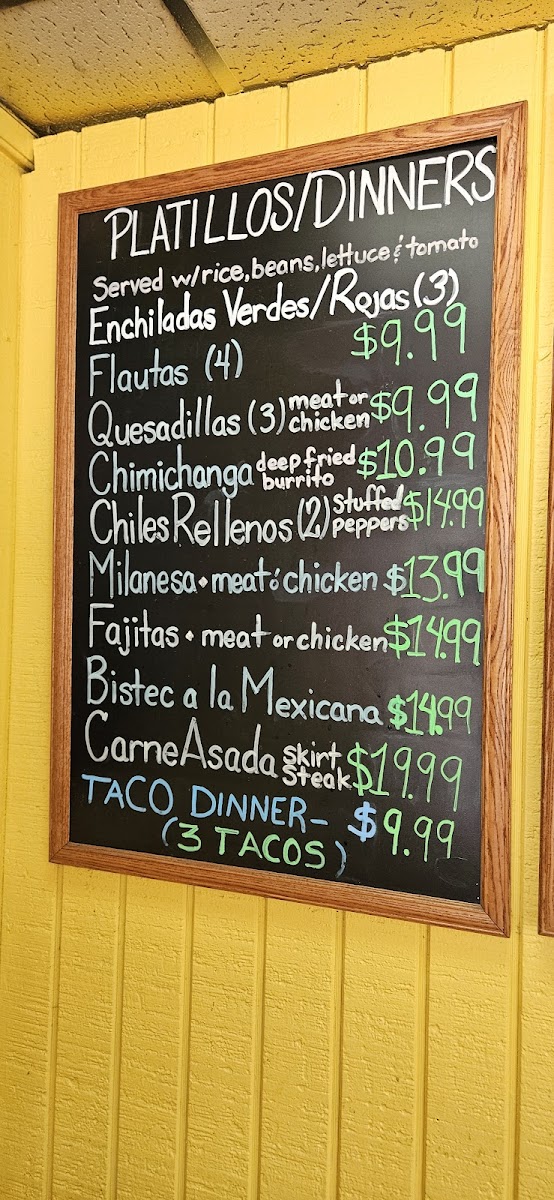 PLATILLOS/DINNERS
Served w/rice, beans, lettuce & tomato
Enchiladas Verdes/Rojas (3)
Flautas (4) $9.99
Quesadillas (3) meat or chicken $9.99
Chimichanga deep fried burrito $10.99
Chiles Rellenos (2) Stuffed peppers $14.99
Milanesa • meat ó chicken $13.99
Fajitas • meat or chicken $14.99
Bistec a la Mexicana $14.99
Carne Asada Skirt Steak $19.99
TACO DINNER- $9.99
(3 TACOS)